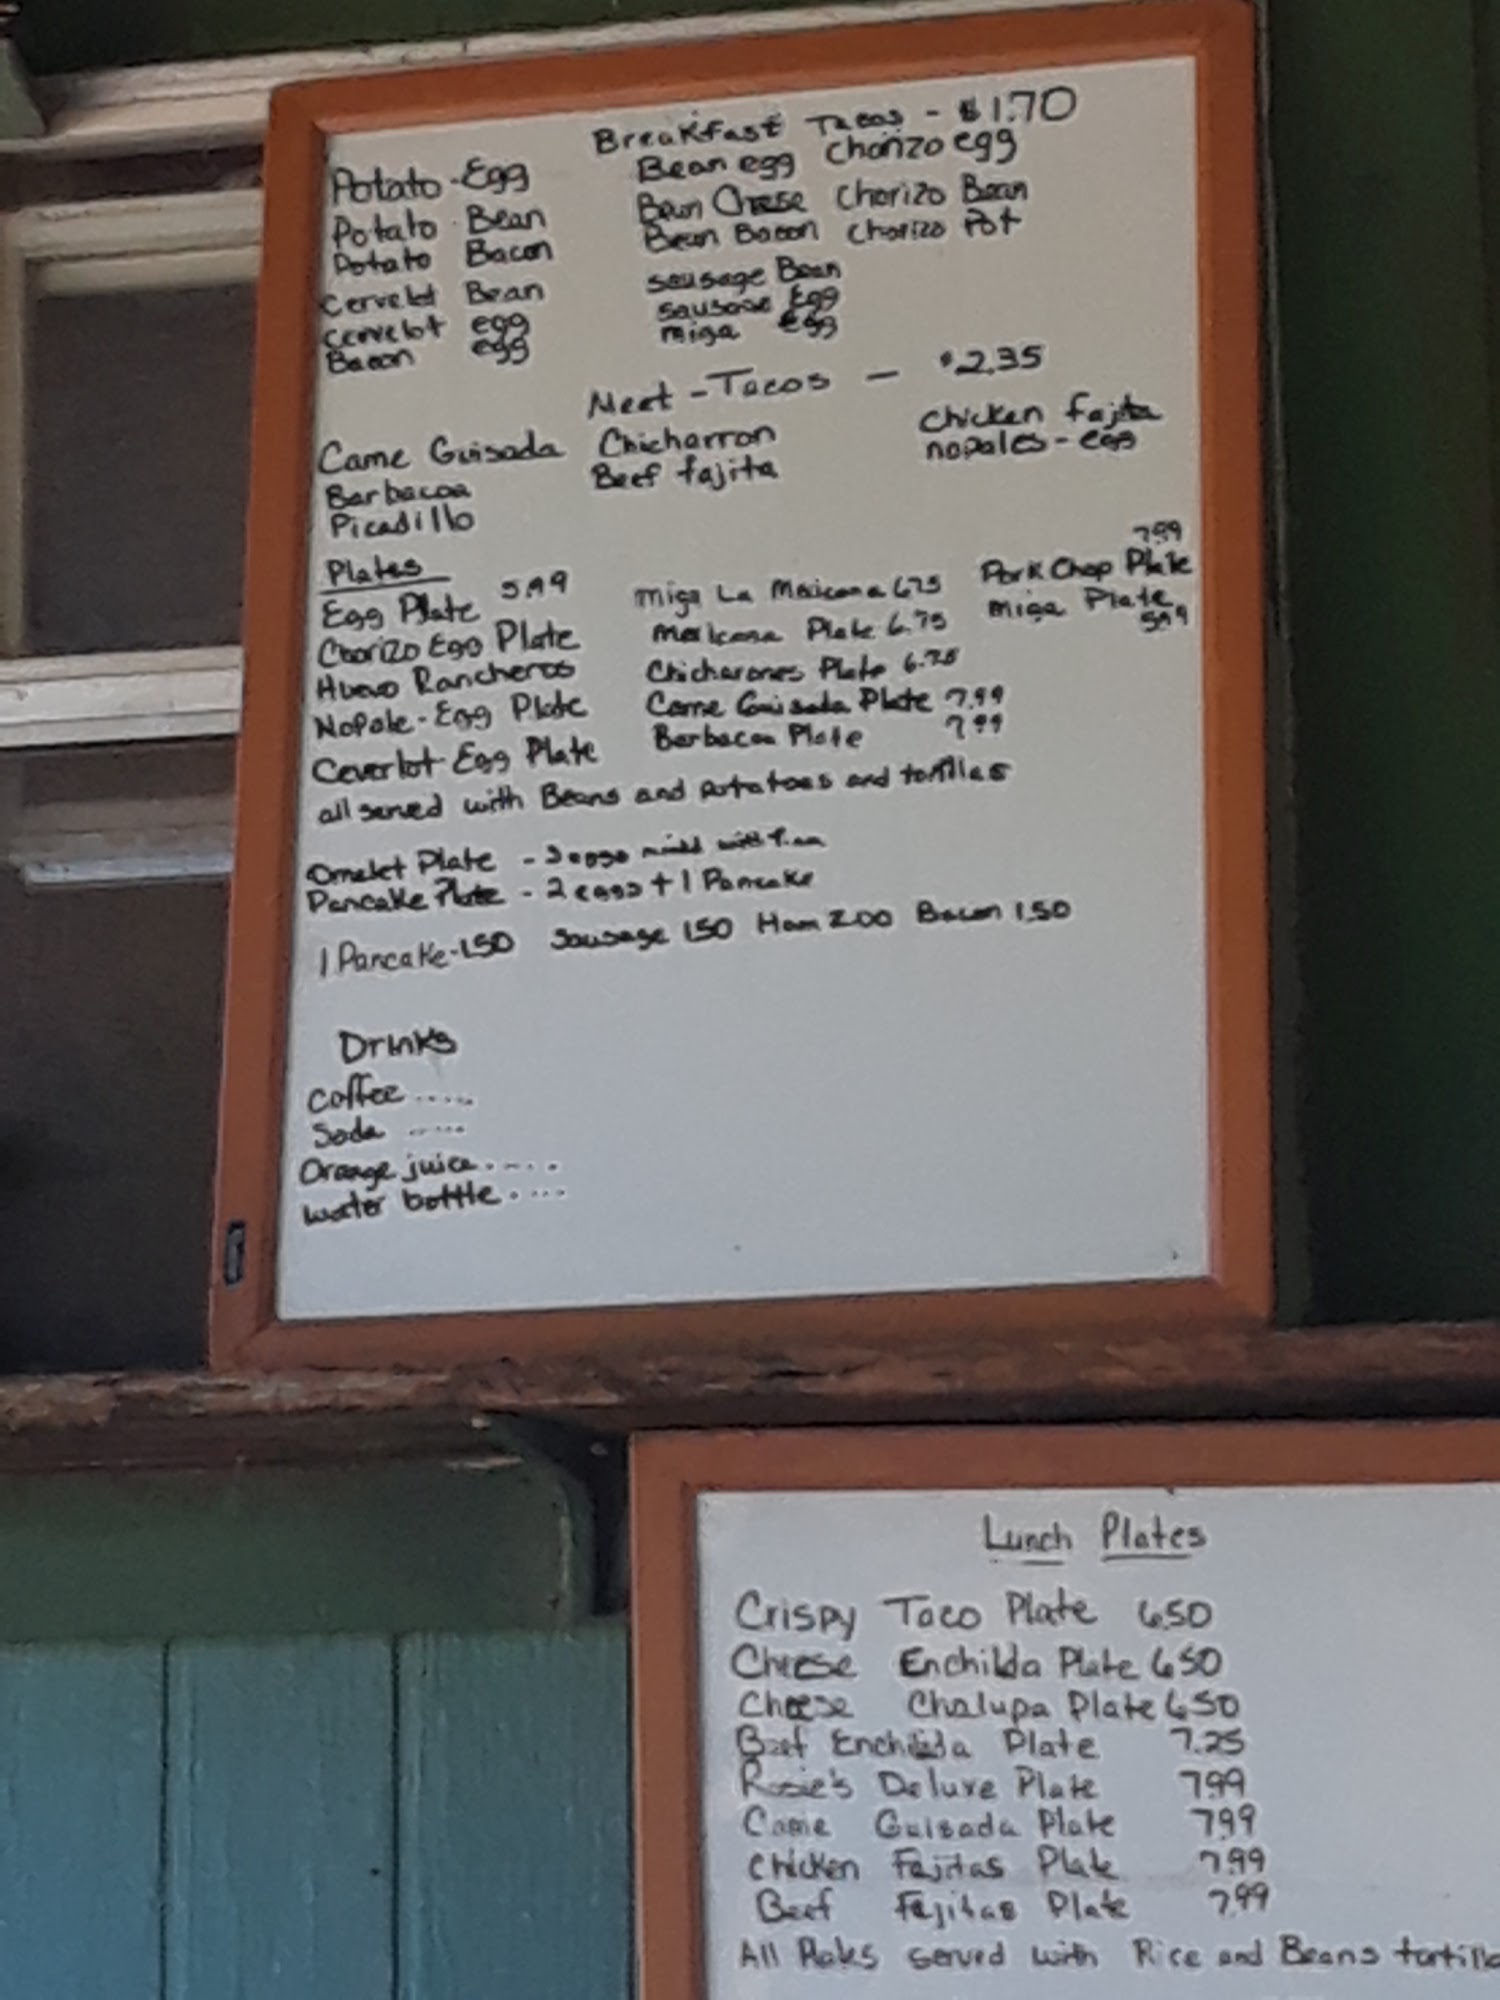 Breakfast Tacos - $1.70
Potato - Egg Bean egg Chorizo egg
Potato Bean Bean Cheese Chorizo Bean
Potato Bacon Bean Bacon Chorizo Pot
Cervelot Bean sausage Bean
cervelot egg sausage Egg
Bacon egg miga Egg
Meat - Tacos - $2.35
Carne Guisada Chicharron Chicken fajita
Barbacoa Beef fajita nopales - egg
Picadillo
Plates
Egg Plate 5.99 miga La Mexicana 6.75 Pork Chop Plate 7.99
Chorizo Egg Plate Mexicana Plate 6.75 miga Plate 5.99
Huevo Rancheros Chicharones Plate 6.75
Nopale - Egg Plate Carne Guisada Plate 7.99
Ceverlot Egg Plate Barbacoa Plate 7.99
all served with Beans and potatoes and tortillas
Omelet Plate - 3 eggs with
Pancake Plate - 2 eggs + 1 Pancake
1 Pancake - 1.50 Sausage 1.50 Ham 2.00 Bacon 1.50
Drinks
Coffee .....
Soda .....
Orange juice .....
water bottle .....
Lunch Plates
Crispy Taco Plate 6.50
Cheese Enchilda Plate 6.50
Cheese Chalupa Plate 6.50
Beef Enchilada Plate 7.25
Rosie's Deluxe Plate 7.99
Carne Guisada Plate 7.99
Chicken Fajitas Plate 7.99
Beef Fajitas Plate 7.99
All Plates served with Rice and Beans tortilla